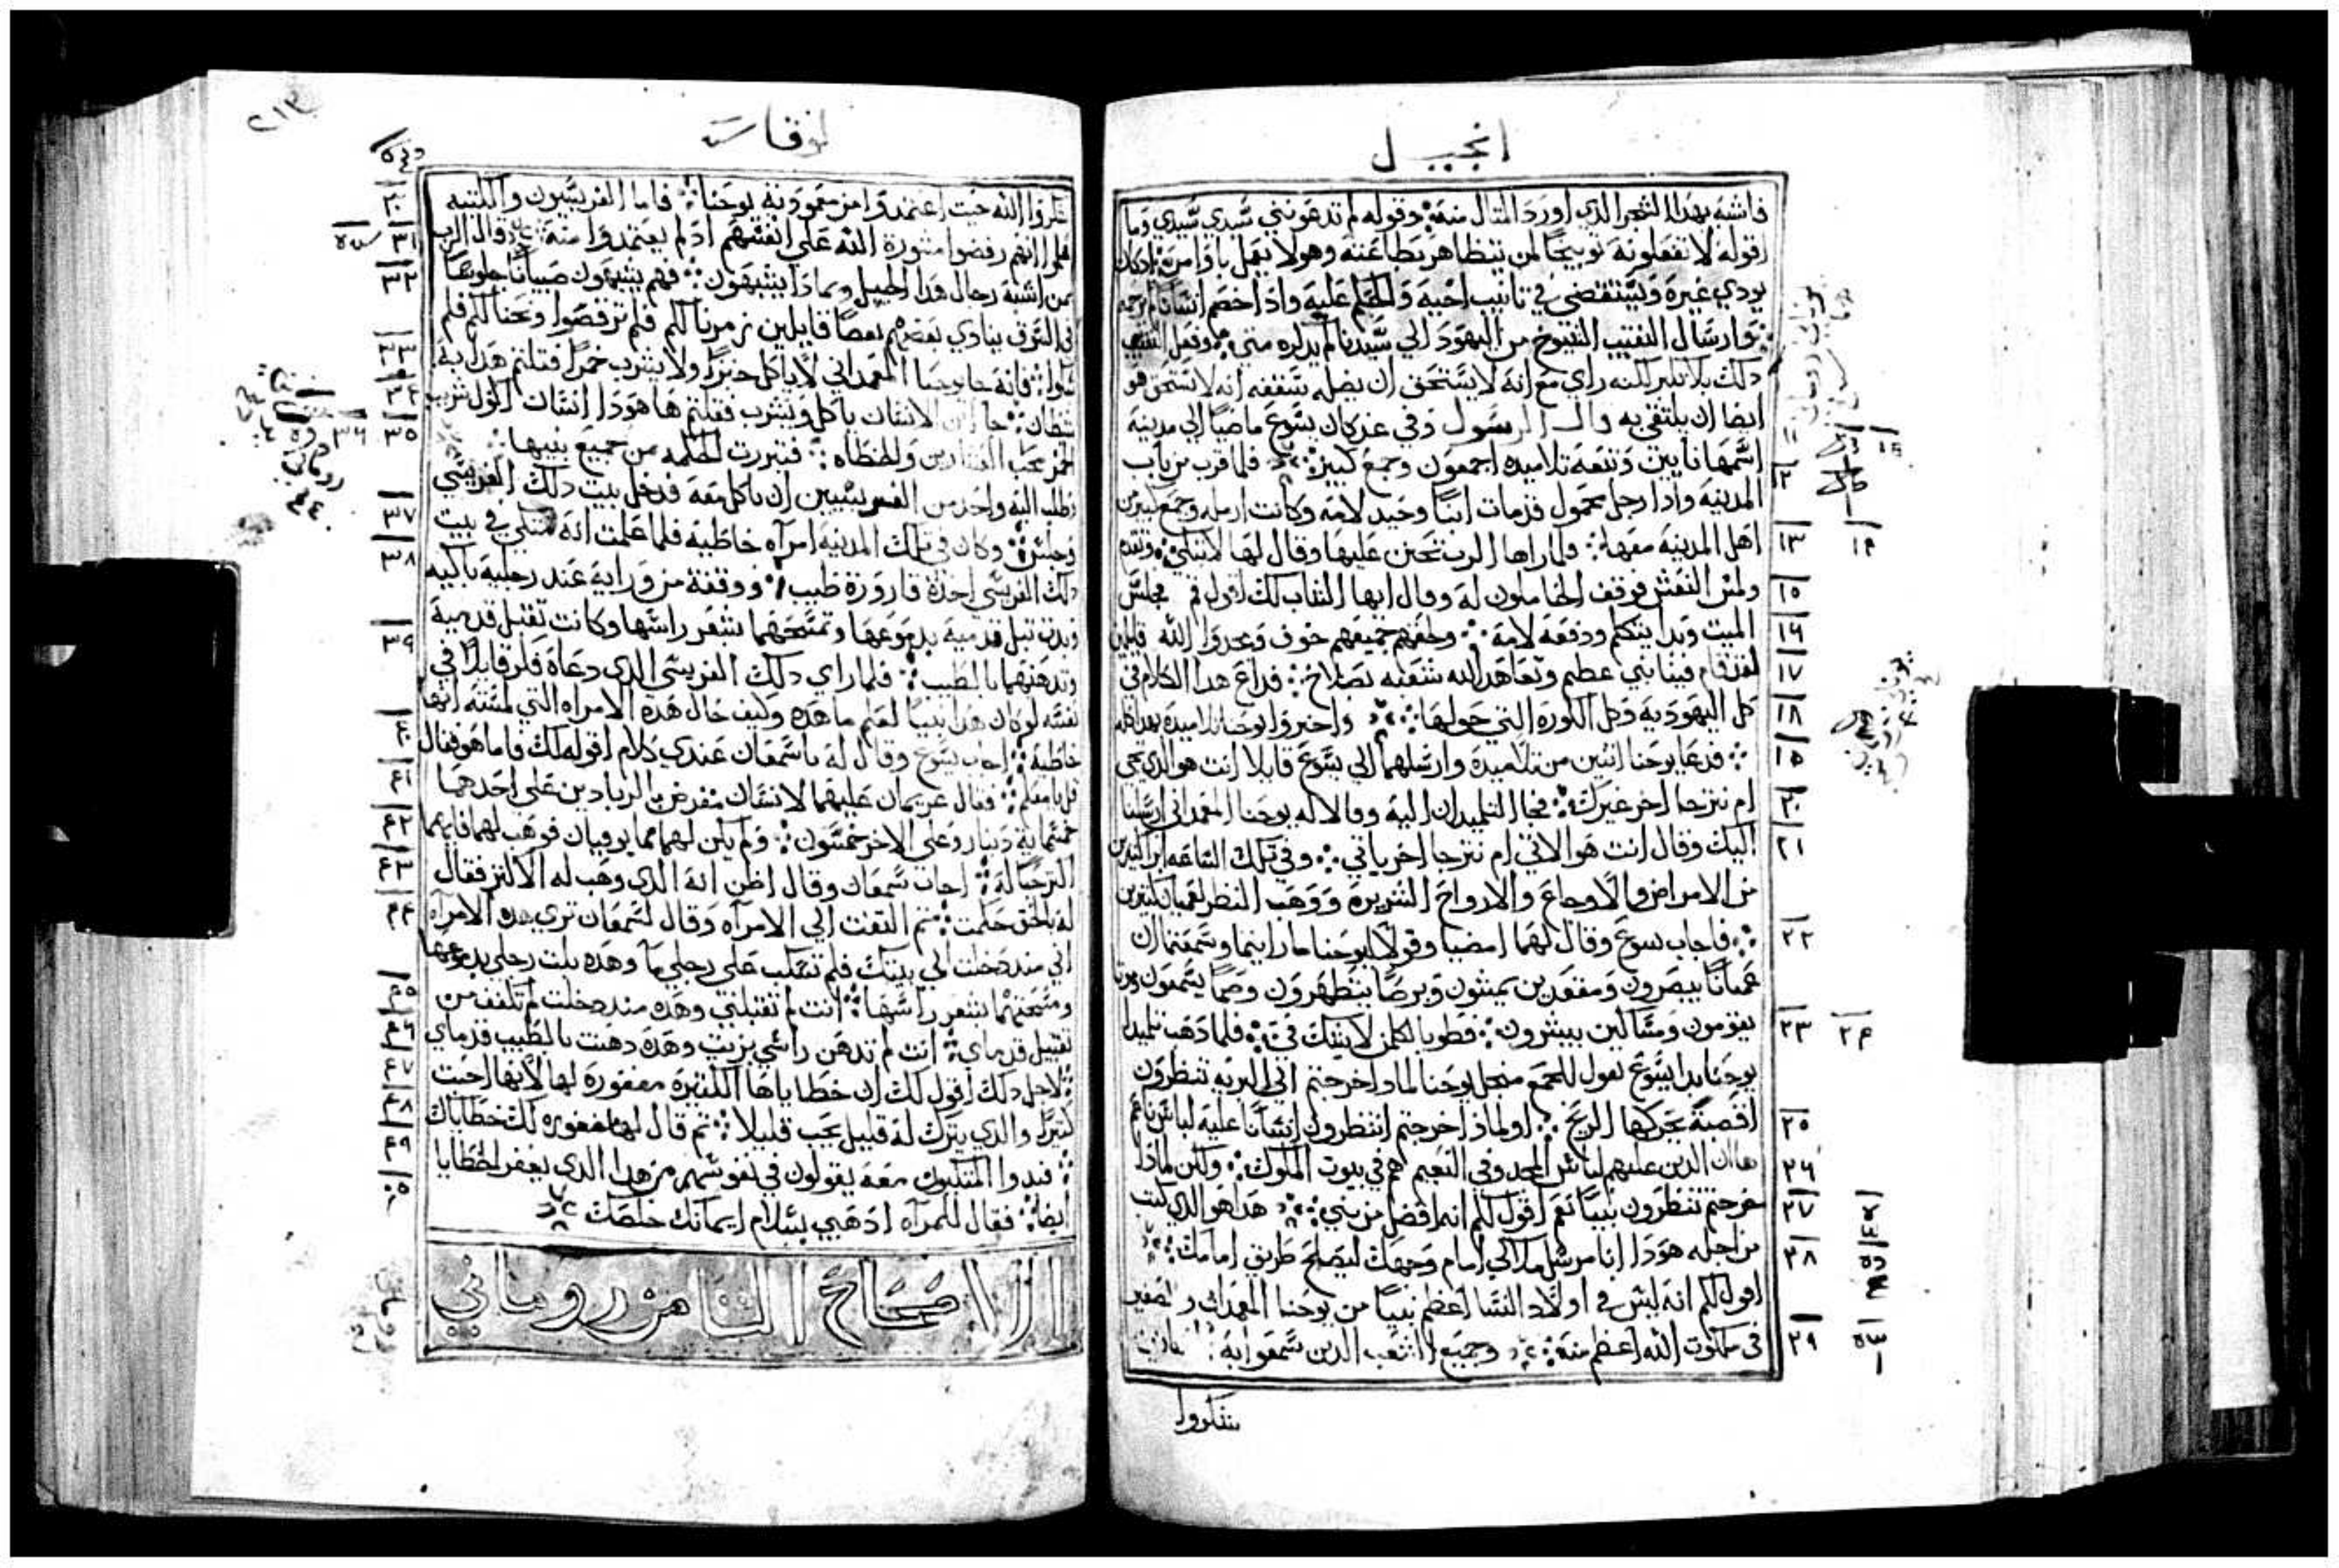 انجيل
فاشبه بهدا الشجر الدي اورد المثال منه وقوله لم تدعونني سيدي سيدي وما
اقوله لا تفعلونه توبيخا لمن يتظاهر بطاعته وهو لا يعمل باوامره
يودي غيره ويستقضي في تانيب اخيه والحكم عليه وادا خصم انسانا
وارسال النقيب الشيوخ من اليهود الي سيدنا لم يدكره متي وفعل النقيب
دلك بلا تكبر لكنه راي مع انه لا يستحق ان يصله بنفسه انه لا يستحق هو
ايضا ان يلتقي به قال الرسول وفي غد كان يسوع ماضيا الي مدينة
اسمها نايين وتتبعه تلاميده اجمعون وجمع كبير فلما قرب من باب
المدينه وادا رجل محمول قد مات ابنا وحيد لامه وكانت ارمله وجمع كبير من
اهل المدينه معها فلما راها الرب تحنن عليها وقال لها لا تبكي وتقدم
ولمس النعش فوقف الحاملون له وقال ايها الشاب لك اقول قم فجلس
الميت وبدا يتكلم ودفعه لامه ولحقهم جميعهم خوف ومجدوا الله قايلين
لقد قام فينا نبي عظيم وتعاهد الله شعبه بصلاح فداع هدا الكلام في
كل اليهوديه وكل الكوره التي حولها واخبروا يوحنا تلاميده بهدا كله
فدعا يوحنا اثنين من تلاميده وارسلهما الي يسوع قايلا انت هو الدي يجي
ام نترجا اخر غيرك فجا التلميدان اليه وقالا له يوحنا المعمداني ارسلنا
اليك وقال انت هو الاتي ام نترجا اخر ياتي وفي تلك الساعه ابرا كثيرين
من الامراض والاوجاع والارواح الشريره ووهب النظر لعميان كثيرين
فاجاب يسوع وقال لهما امضيا وقولا ليوحنا ما رايتما وسمعتما ان
عميانا يبصرون ومقعدين يمشون وبرصا يتطهرون وصما يسمعون وموتا
يقومون ومساكين يبشرون فطوبا لكلمن لا يشك في فلما دهب تلميدا
يوحنا بدا يسوع يقول للجمع منجل يوحنا لمادا خرجتم الي البريه تنظرون
اقصبة يحركها الريح او لمادا خرجتم لتنظرون انسانا عليه لباس ناعم
هاان الدين عليهم لباس المجد وفي النعيم هم في بيوت الملوك ولكن لمادا
خرجتم تنظرون نبيا نعم اقول لكم انه افضل من نبي هدا هو الدي كتب
من اجله هودا انا مرسل ملاكي امام وجهك ليصلح طريق امامك
اقول لكم انه ليس في اولاد النسا اعظم نبيا من يوحنا المعمدان والصغير
في ملكوت الله اعظم منه وجميع الشعب الدين سمعوا به
شكروا
١١
١٢
١٣
١٥
١٦
١٧
١٨
١٩
٢٠
٢١
٢٢
٢٣
٢٥
٢٦
٢٧
٢٨
٢٩
لوقاس
٢١٣
شكروا الله حيث اعتمدوا من معمودية يوحنا فاما الفريسيون والكتبه
فلم انهم رفضوا مشورة الله علي انفسهم اد لم يعتمدوا منه قال الرب
بمن اشبه رجال هدا الجيل وبمادا يشبهون فهم يشبهون صبيانا جلوسا
في السوق ينادي بعضهم بعضا قايلين زمرنا لكم فلم ترقصوا ونحنا لكم فلم
تبكوا فانه جا يوحنا المعمداني لا ياكل خبزا ولا يشرب خمرا فقلتم هدا به
شيطان جا ابن الانسان ياكل ويشرب فقلتم ها هودا انسان اكول شريب
الخمر محب العشارين والخطاه فتبررت الحكمه من جميع بنيها
وطلب اليه واحد من الفريسيين ان ياكل معه فدخل بيت دلك الفريسي
وجلس وكان في تلك المدينه امراه خاطيه فلما علمت انه متكي في بيت
دلك الفريسي اخدة قارورة طيب ووقفة من ورايه عند رجليه باكيه
وبدت تبل قدميه بدموعها وتمسحهما بشعر راسها وكانت تقبل قدميه
وتدهنهما بالطيب فلما راي دلك الفريسي الدي دعاه فكر قايلا في
نفسه لو كان هدا نبيا لعلم ما هده وكيف حال هده الامراه التي لمسته انها
خاطيه اجاب يسوع وقال له يا سمعان عندي كلام اقوله لك فاما هو فقال
قل يا معلم فقال غريمان عليهما لانسان مقرض الربا دين علي احدهما
خمسماية دينار وعلي الاخر خمسون ولم يكن لهما مما يوفيان فوهب لهما فايهما
اكثر حبا له اجاب سمعان وقال اظن انه الدي وهب له الاكثر فقال
له بالحق حكمت ثم التفت الي الامراه وقال لسمعان تري هده الامراه
اني مند دخلت الي بيتك فلم تسكب علي رجلي ما وهده بلت رجلي بدموعها
ومسحتهما بشعر راسها انت لم تقبلني وهده مند دخلت لم تكفف من
تقبيل قدماي انت لم تدهن راسي بزيت وهده دهنت بالطيب قدماي
لاجل دلك اقول لك ان خطاياها الكثيره مغفوره لها لانها احبت
كثيرا والدي يترك له قليل يحب قليلا ثم قال لها مغفوره لك خطاياك
فبدوا المتكيون معه يقولون في نفوسهم من هدا الدي يغفر الخطايا
ايضا فقال للمراه ادهبي بسلام ايمانك خلصك
الاصحاح الثامن روماني
٣٠
٣١
٣٢
٣٣
٣٤
٣٥
٣٦
٣٧
٣٨
٣٩
٤٠
٤١
٤٢
٤٣
٤٤
٤٥
٤٦
٤٧
٤٨
٤٩
٥٠